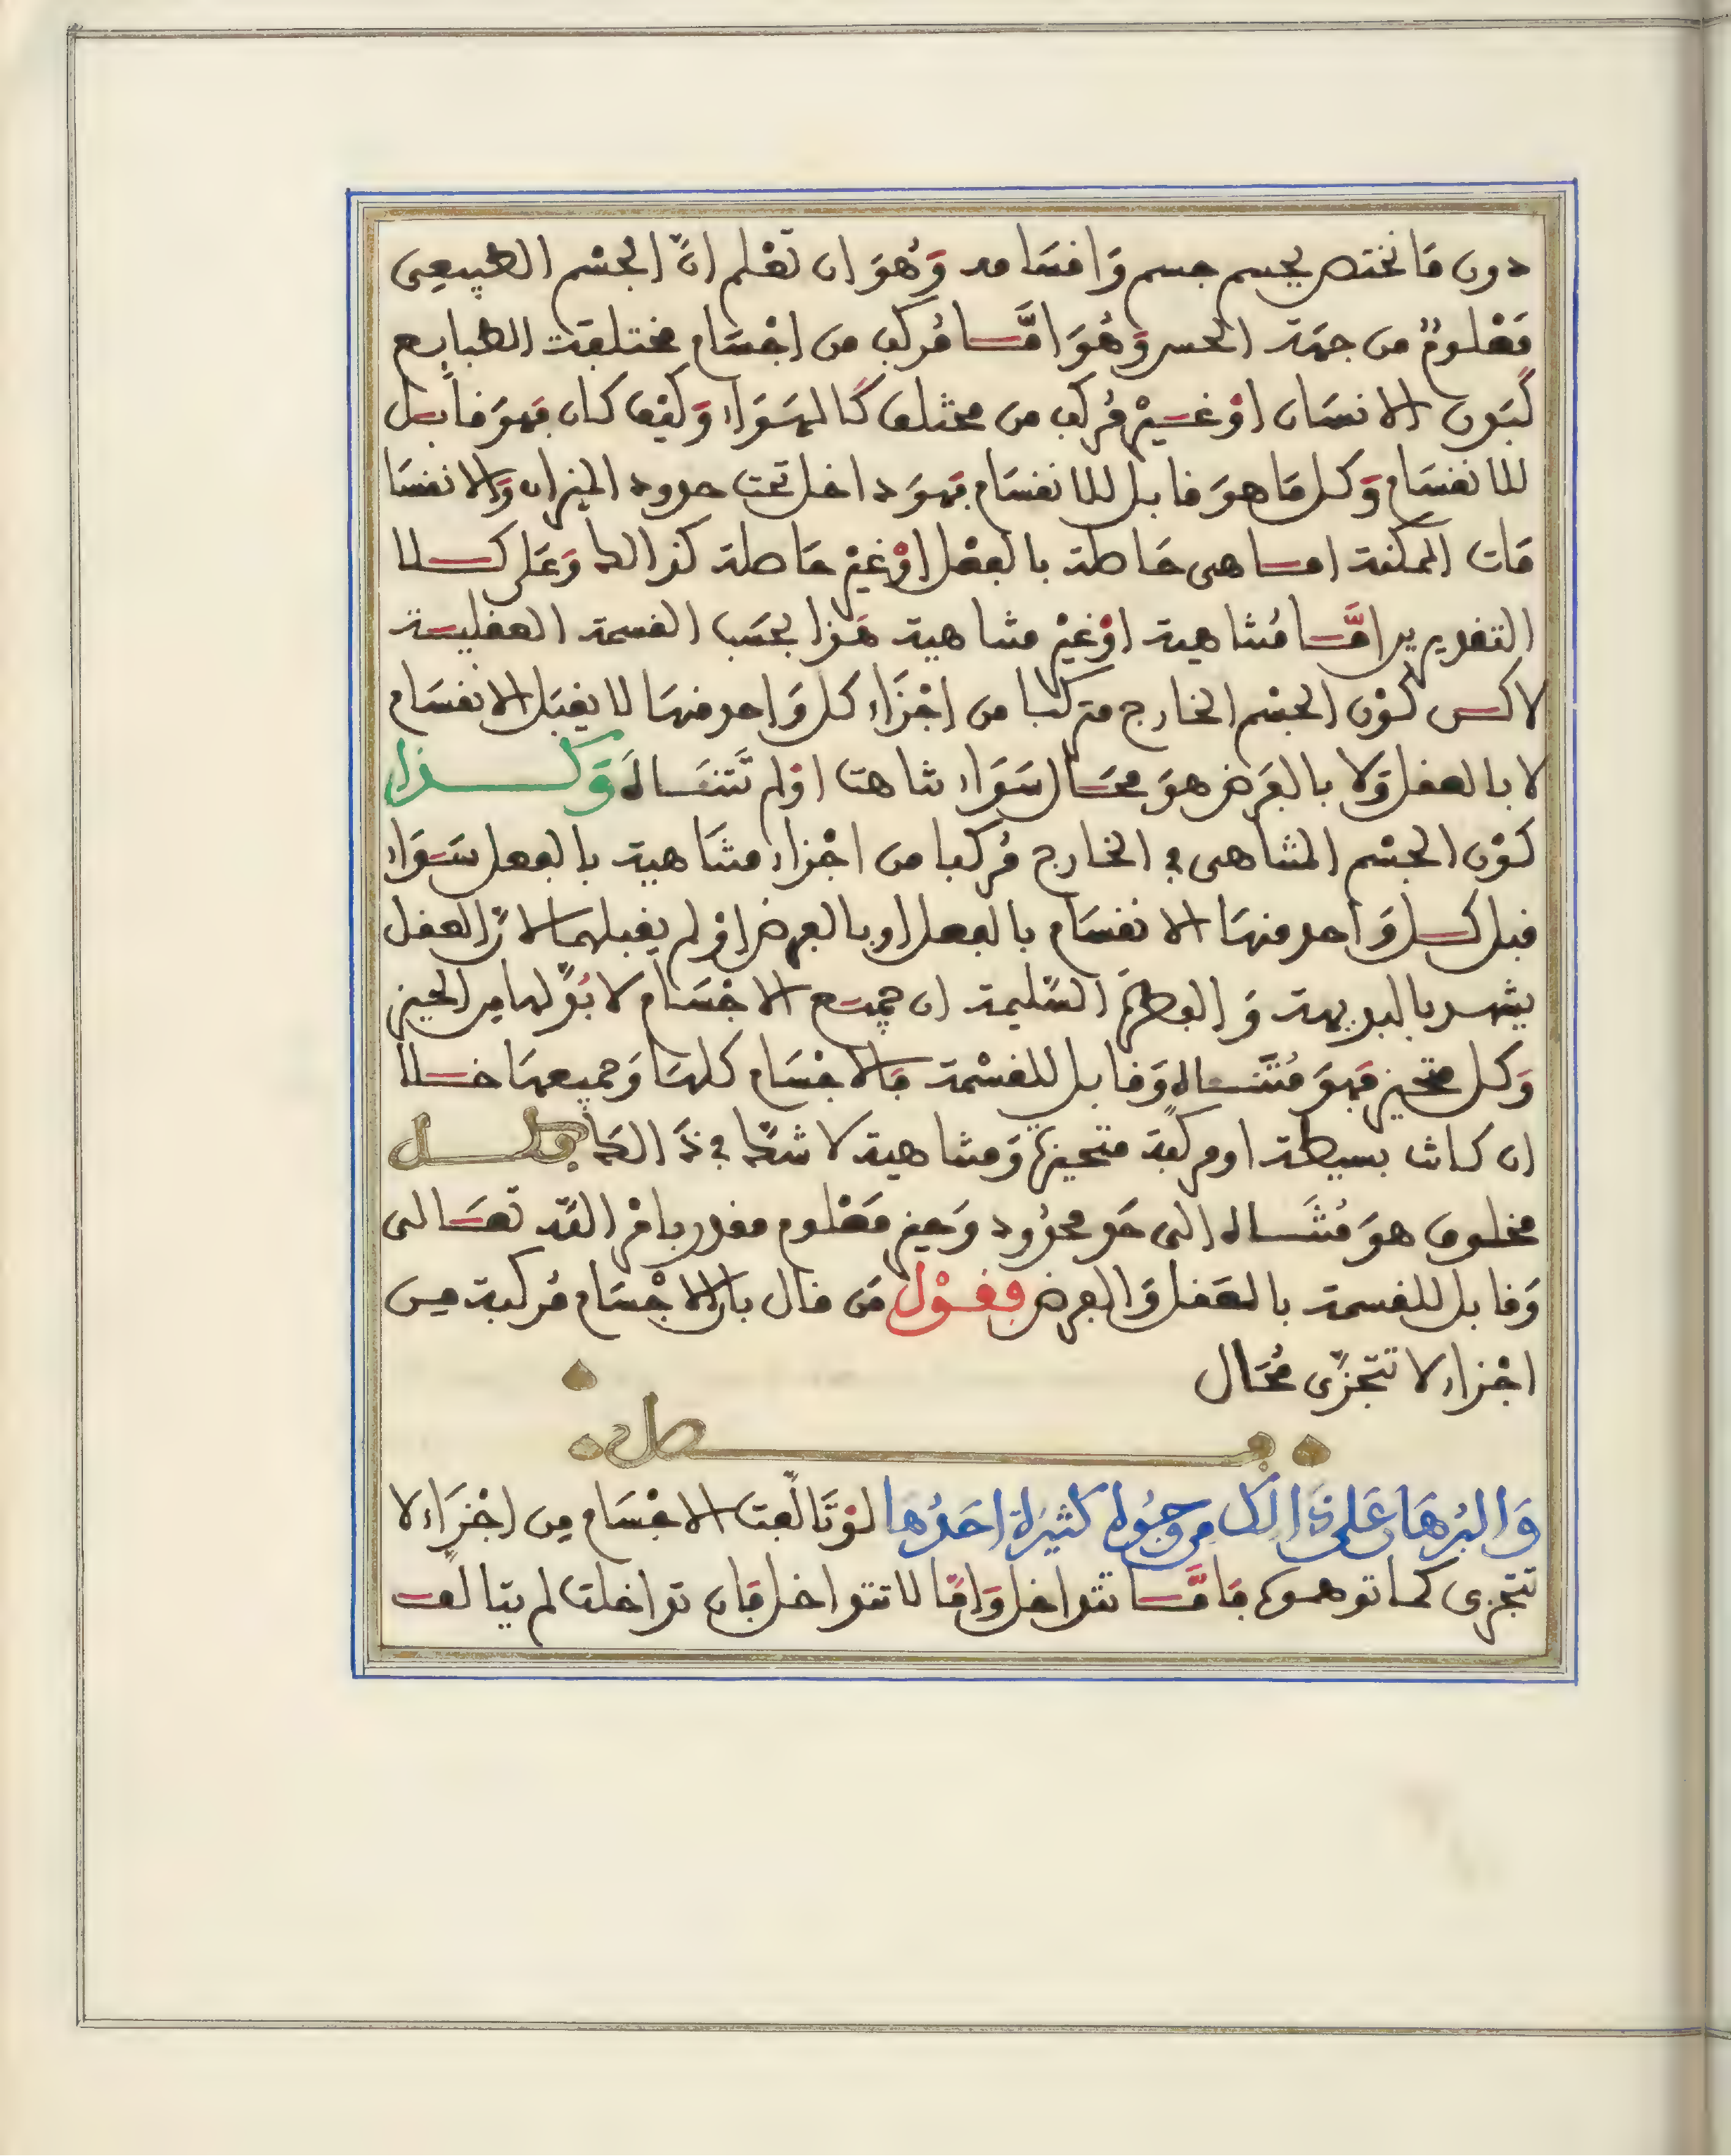 دون مَا تختص بجسم جسم وَاقسَامه وَهُوَ ان تعْلم انّ الجسْم الطبيعى
مَعْلومٌ من جهَة الحس وَهُوَ امَّا مُركب من اجْسَام مختلفة الطبايع
كَبَدن الانسَان اوْ غيْر مُركب من مختلف كَالهَوَاء وَكيْف كان فهوَ قابل
للانقسَام وَكل مَا هوَ قابل للانقسَام فهوَ داخل تحت حدود الميزان وَالانقسَا
مَات الممكنة اما هى حَاصلة بالفعْل اوْ غيْر حَاصلة كذالك وَعَلى كلا
التقديرين امَّا مُتناهية اوْ غيْر متناهية هَذا بحسَب القسمة العقلية
لاكن كوْن الجسْم الخارج متركبا من اجْزَاء كل وَاحد منهَا لا يقبَل الانقسَام
لا بالعقل وَلا بالفَرض هوَ محَال سَوَاء تناهت اوْ لم تَتنَاهَ وَكذا
كوْن الجسْم المتناهى فى الخارج مُركبا من اجْزاء متنَاهية بالفعل سَوَاء
قبل كل وَاحد منهَا الانقسَام بالفعل او بالفرض اوْ لم يقبلهما لانّ العقل
يشهد بالبديهة وَالفطرَة السّليمة ان جميع الاجْسَام لا بُدّ لها من الحيز
وَكل متحيز فهوَ مُتَنَاه وَقابل للقسْمة فالاجْسَام كلهَا وَجميعهَا خلا
ان كانت بسيطة او مركبة متحيزة وَمتناهية لا شكّ فى ذَالكَ فكل
مخلوق هوَ مُتنَاه الى حَد محدُود وَحيز مَعْلوم مقدر بامْر الله تعَالى
وَقابل للقسمة بالعَقل وَالفرض فقوْل مَن قال بان الاجْسَام مُركبة من
اجْزاء لا تتجزّى مُحَال
فصل
وَالبُرهَان عَلى ذَالك من وجُوه كثيرَة احَدُها لوْ تَالّفت الاجْسَام مِن اجْزَاء لا
تتجزى كما توهموه فامَّا تتداخل وَامّا لا تتداخل فان تداخلت لم يتالف